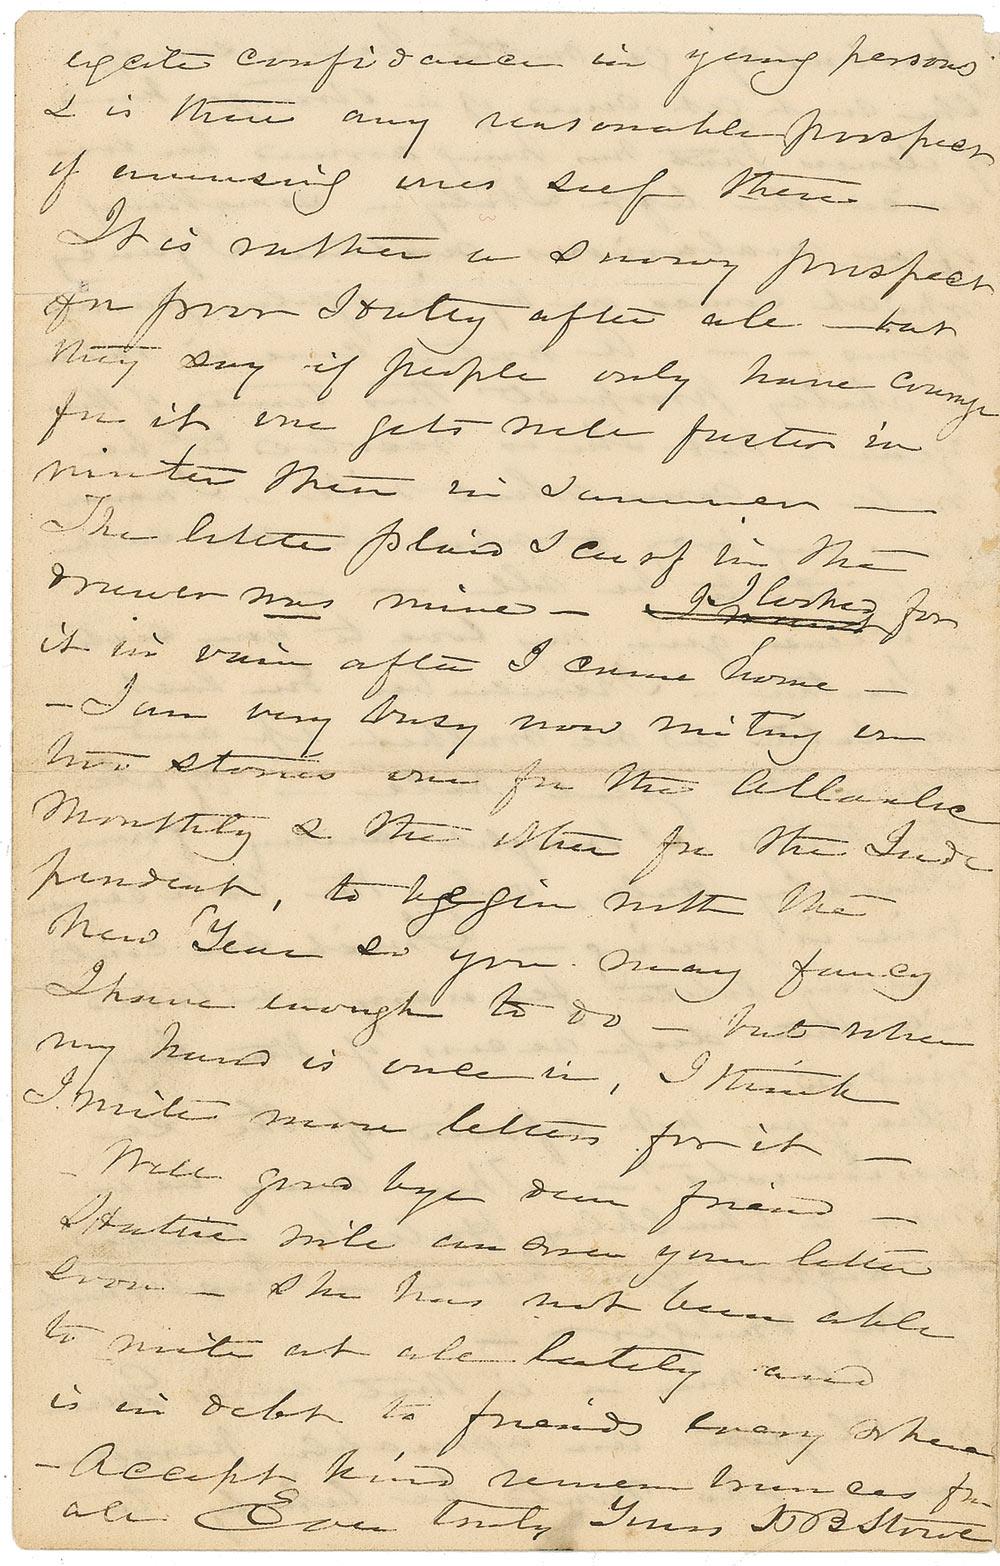 excite confidance in young persons
& is there any reasonable prospect
of amusing ones self there —
It is rather a snowy prospect
for poor Hatty after all — but
they say if people only have courage
for it one gets well faster in
winter than in summer —
The little plaid scarf in the
drawer was mine — I looked for
it in vain after I came home —
— I am very busy now writing on
two stories one for the Atlantic
Monthly & the other for the Inde
pendent, to beggin with the
New Year so you may fancy
I have enough to do — but when
my hand is once in, I think
I write more letters for it —
— Well good bye dear friend —
Hattie will answer your letter
soon — She has not been able
to write at all lately and
is in debt to friends every where
— Accept kind remembrances for
all Ever truly Yours HB Stowe